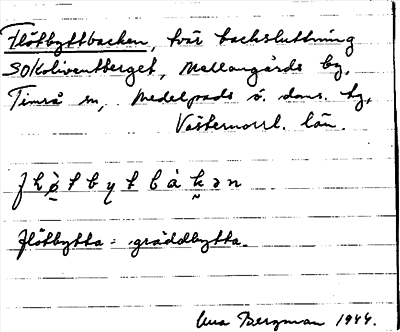 Flötbyttbacken, tvär backsluttning
SO Koliventberget, Mellangårds by,
Timrå sn, Medelpads ö. doms. hg,
Västernorrl. län.
flötbytta = gräddbytta.
Bergman 1944.